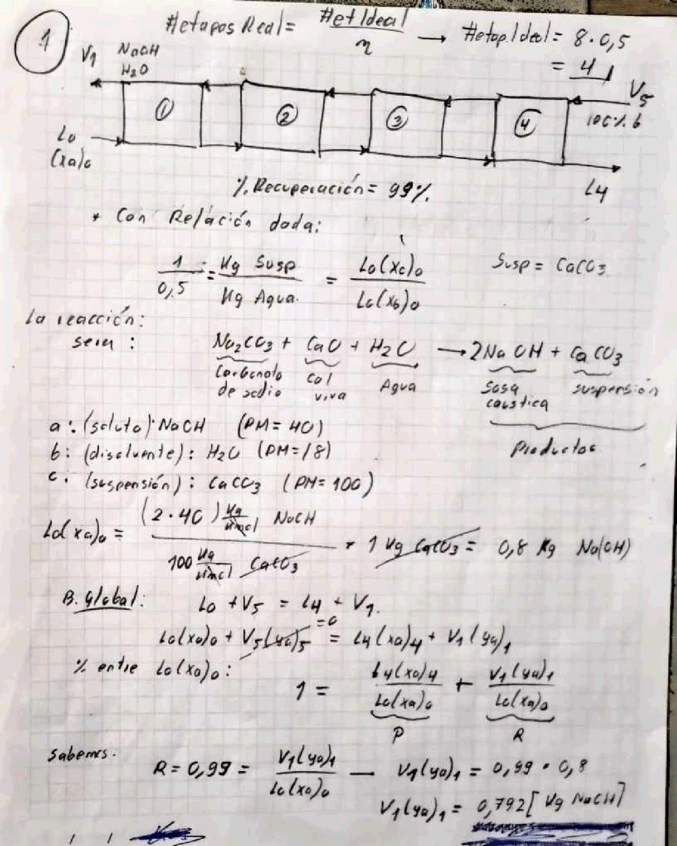 1
#etapas Real = #et Ideal / η → #etap. Ideal = 8 · 0,5
= 4
V1 NaOH
H2O
V5
① ② ③ ④
100% b
Lo
(xa)o
L4
% Recuperación = 99%.
* Con Relación dada:
1 / 0,5 = Kg Susp / Kg Agua. = Lo(xc)o / Lo(xb)o
Susp = CaCO3
La reacción:
sera : Na2CO3 + CaO + H2O → 2NaOH + CaCO3
Carbonato de sodio
Cal viva
Agua
Sosa caustica
suspensión
Productos
a: (soluto): NaOH (PM = 40)
b: (disolvente): H2O (PM = 18)
c: (suspensión): CaCO3 (PM = 100)
Lo(xa)o = (2 · 40) Kg/Kmol NaOH / 100 Kg/Kmol CaCO3 * 1 Kg CaCO3 = 0,8 Kg Na(OH)
B. Global: Lo + V5 = L4 + V1.
Lo(xa)o + V5(ya)5 = L4(xa)4 + V1(ya)1
=0
% entre Lo(xa)o:
1 = L4(xa)4 / Lo(xa)o + V1(ya)1 / Lo(xa)o
P R
Sabemos.
R = 0,99 = V1(ya)1 / Lo(xa)o — V1(ya)1 = 0,99 * 0,8
V1(ya)1 = 0,792 [Kg NaOH]